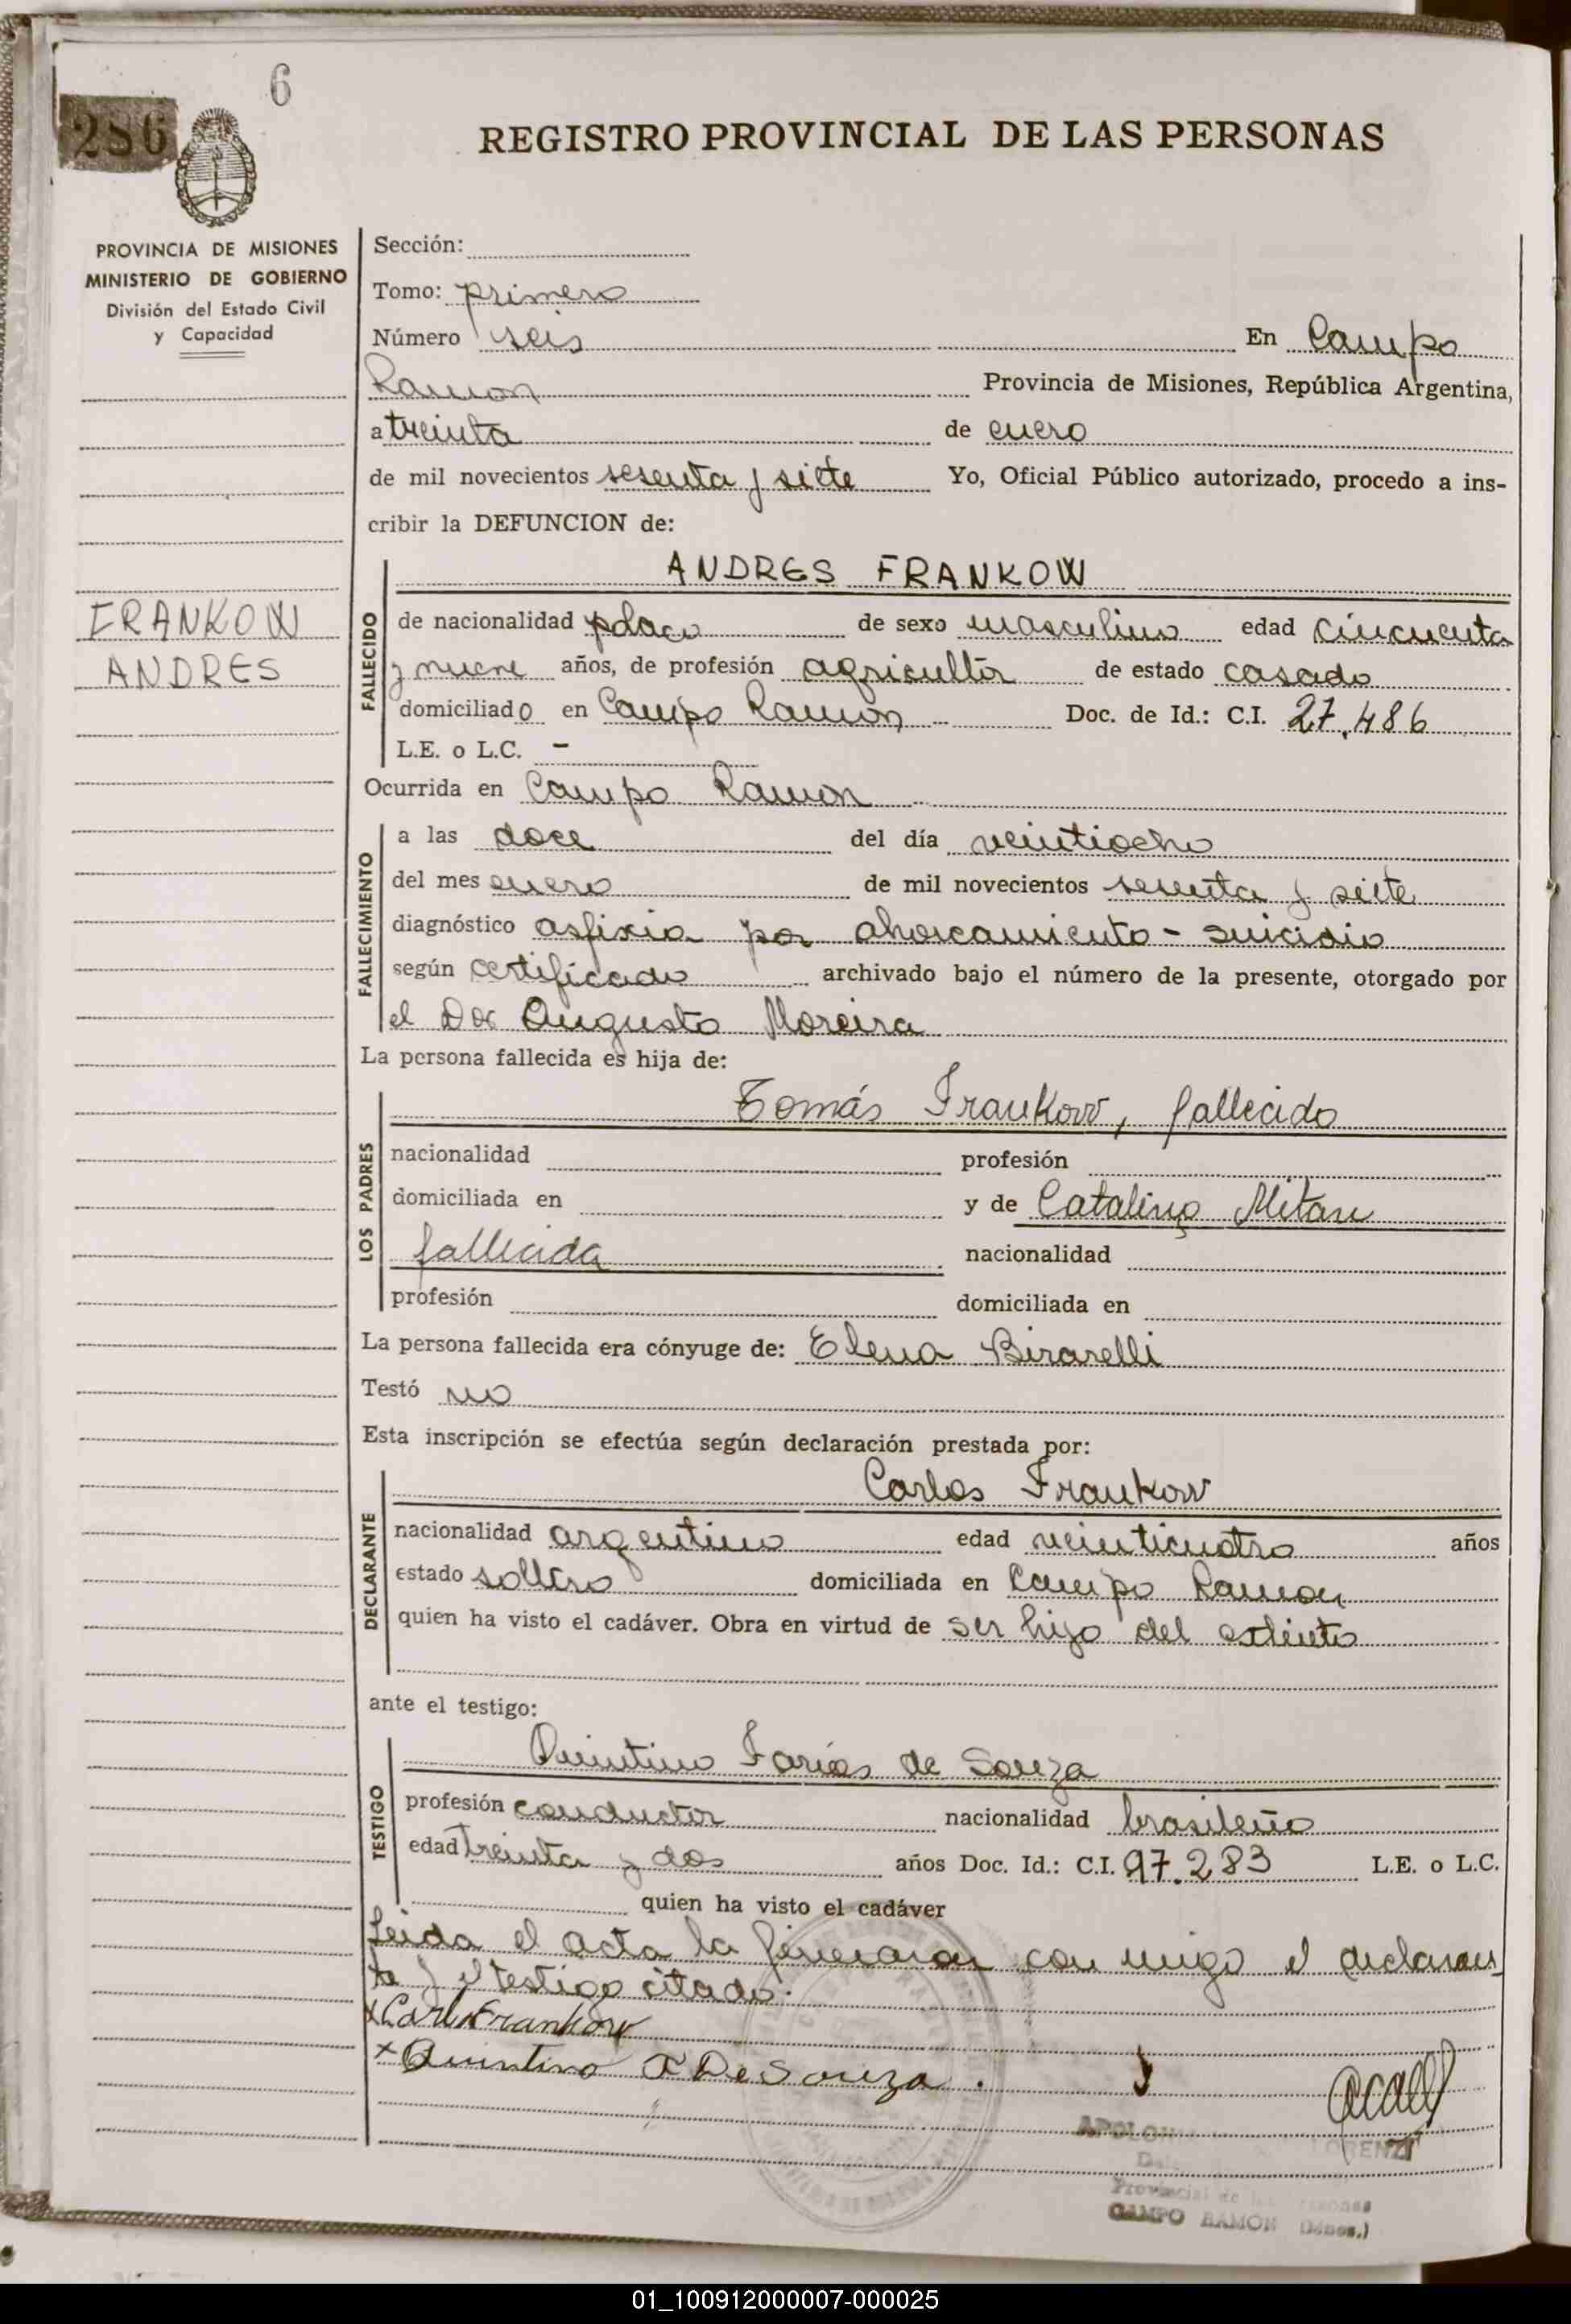 6
286
REGISTRO PROVINCIAL DE LAS PERSONAS
PROVINCIA DE MISIONES
MINISTERIO DE GOBIERNO
División del Estado Civil
y Capacidad
Sección:
Tomo: primero
Número seis En Campo
Ramon Provincia de Misiones, República Argentina,
a treinta de enero
de mil novecientos sesenta y siete Yo, Oficial Público autorizado, procedo a ins-
cribir la DEFUNCION de:
FRANKOW
ANDRES
FALLECIDO
ANDRES FRANKOW
de nacionalidad polaco de sexo masculino edad cincuenta
y nueve años, de profesión agricultor de estado casado
domiciliado en Campo Ramon Doc. de Id.: C.I. 27.486
L.E. o L.C. -
Ocurrida en Campo Ramon
FALLECIMIENTO
a las doce del día veintiocho
del mes enero de mil novecientos sesenta y siete
diagnóstico asfixia por ahorcamiento - suicidio
según certificado archivado bajo el número de la presente, otorgado por
el Doc Augusto Moreira
La persona fallecida es hija de:
LOS PADRES
Tomás Frankow, fallecido
nacionalidad profesión
domiciliada en y de Catalina Mitan
fallecida nacionalidad
profesión domiciliada en
La persona fallecida era cónyuge de: Elena Birarelli
Testó no
Esta inscripción se efectúa según declaración prestada por:
DECLARANTE
Carlos Frankow
nacionalidad argentino edad veinticuatro años
estado soltero domiciliada en Campo Ramon
quien ha visto el cadáver. Obra en virtud de ser hijo del extinto
ante el testigo:
TESTIGO
Quintino Farías de Souza
profesión conductor nacionalidad brasileño
edad treinta y dos años Doc. Id.: C.I. 97.283 L.E. o L.C.
quien ha visto el cadáver
Leida el acta la firmaron con migo el declaran
te y el testigo citado.
x Carlos Frankow
x Quintino F De Souza.
LORENZI
Provincial de las Personas
CAMPO RAMON (Mnes.)
01_100912000007-000025